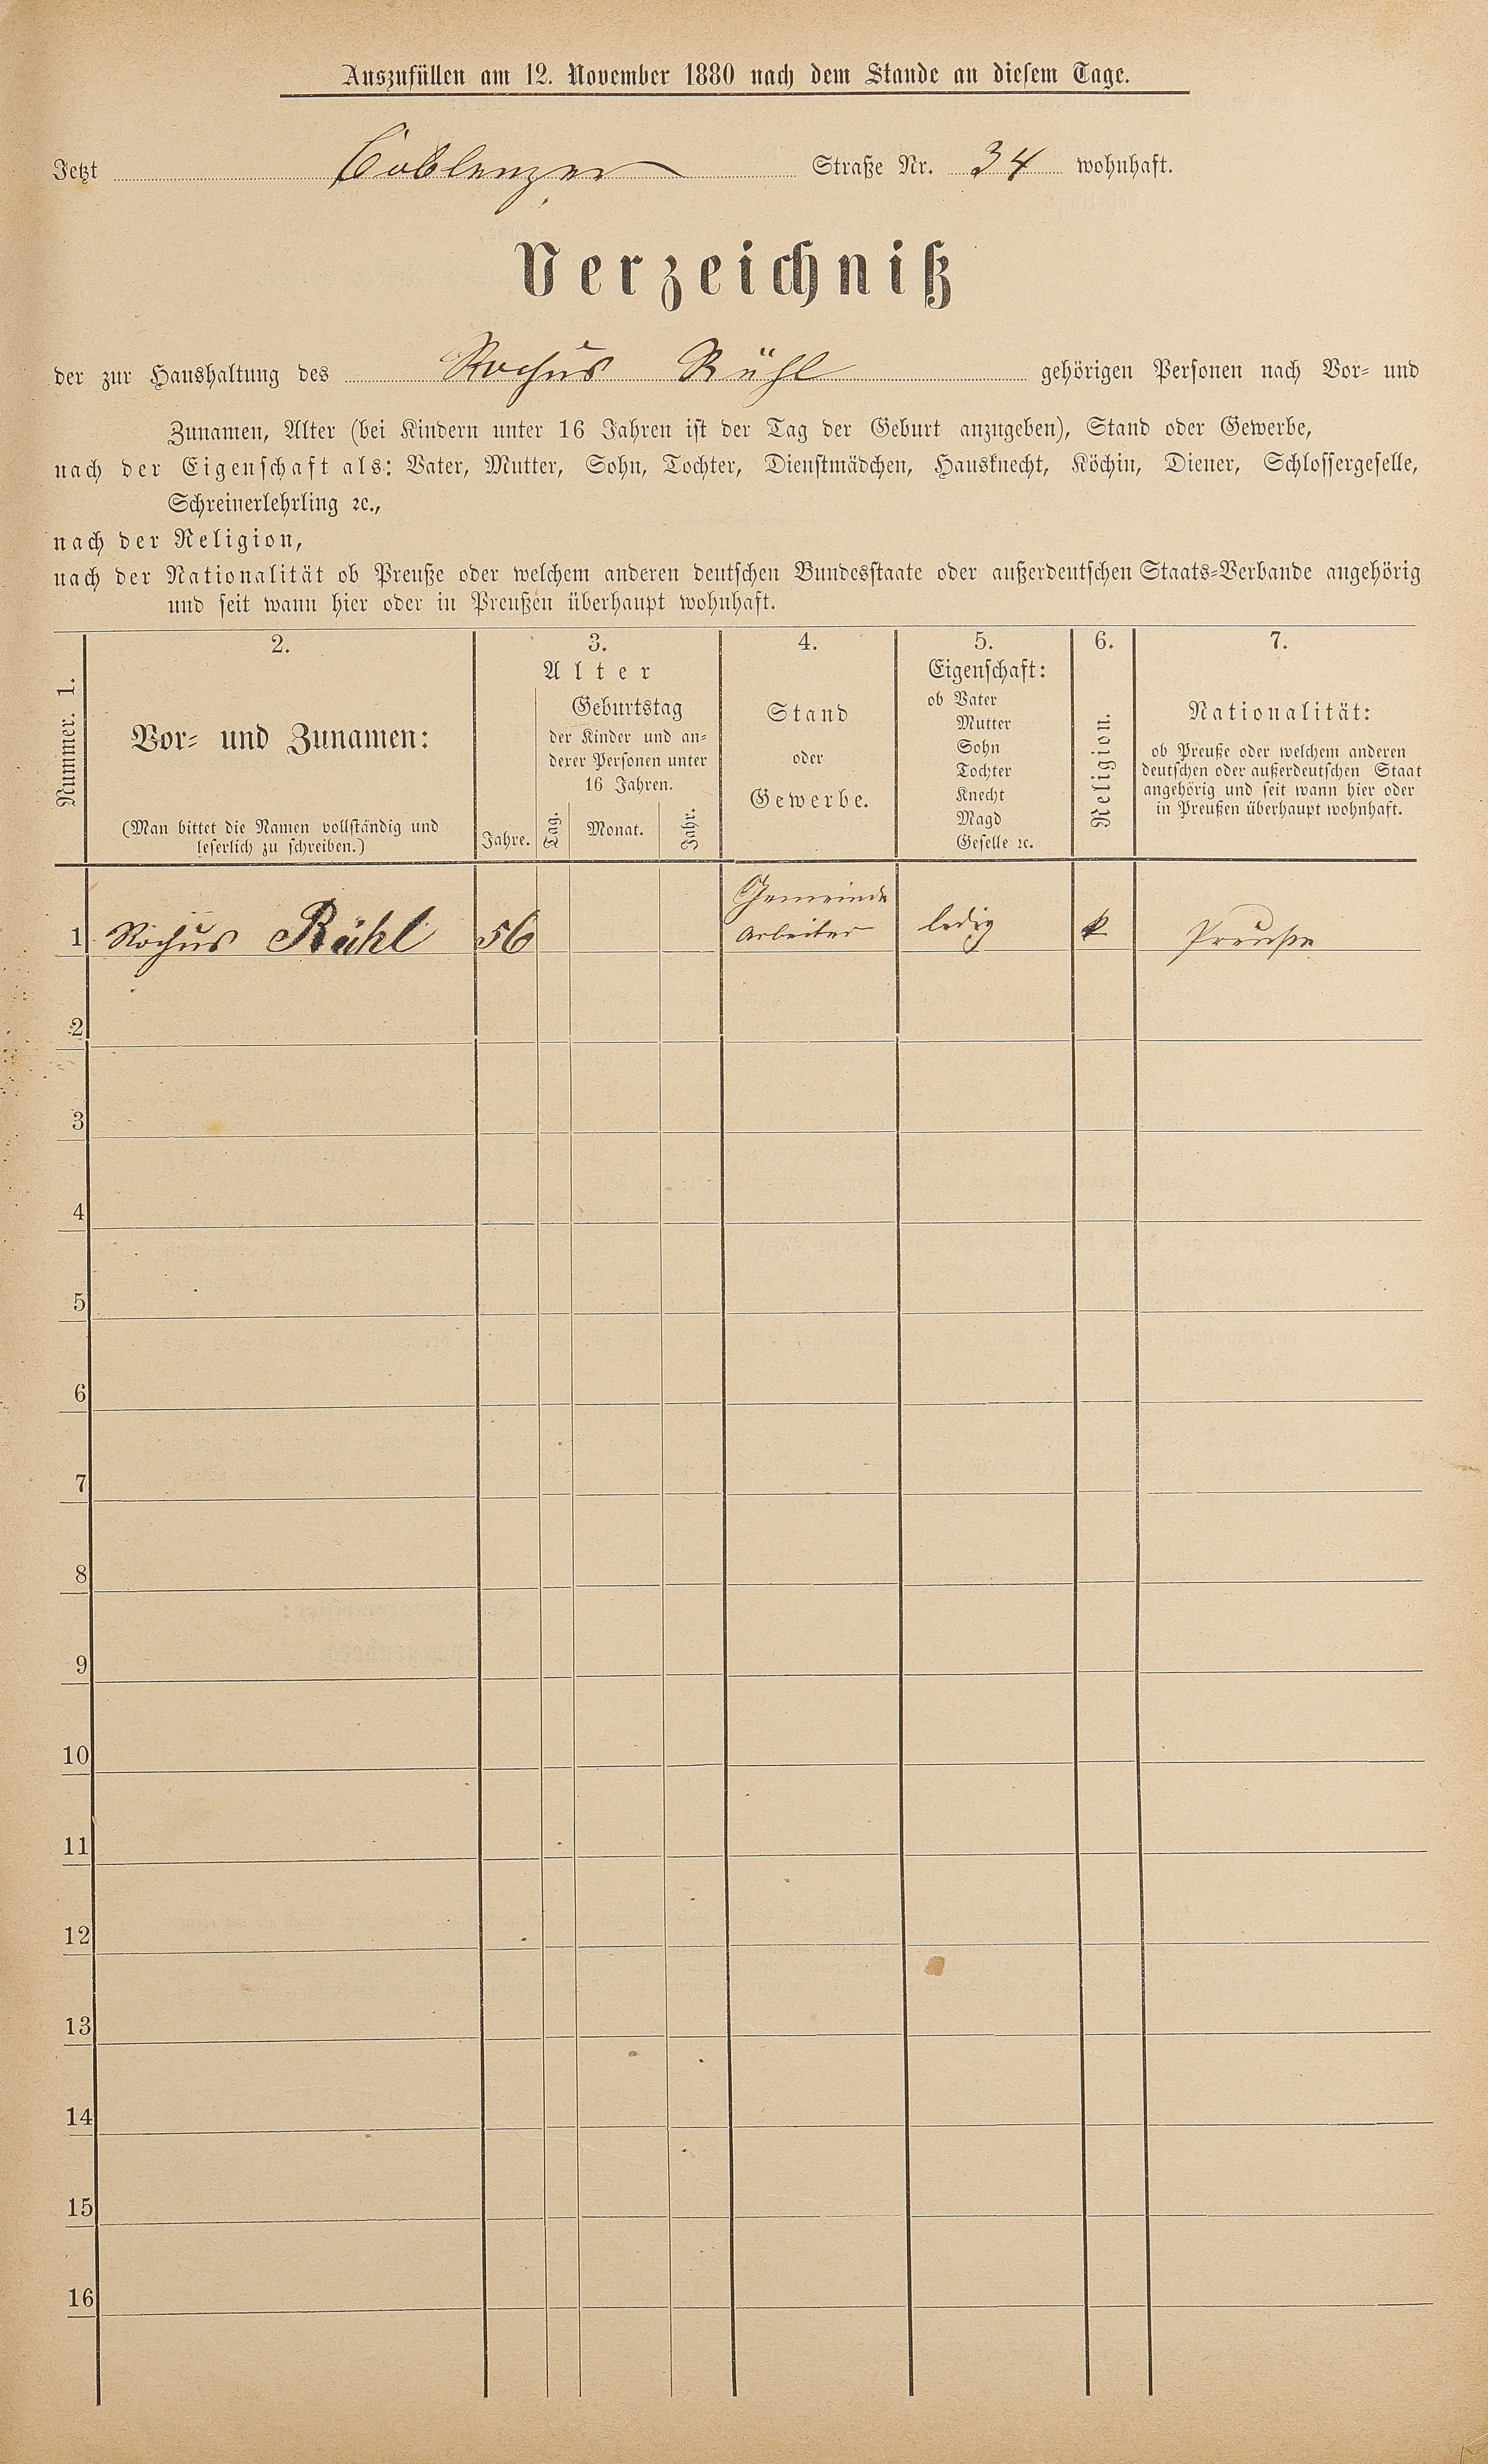 Auszufüllen am 12. November 1880 nach dem Stande an diesem Tage.
Jetzt Coblenzer Straße Nr. 34 wohnhaft.
Verzeichniß
der zur Haushaltung des Rochus Rühl gehörigen Personen nach Vor- und
Zunamen, Alter (bei Kindern unter 16 Jahren ist der Tag der Geburt anzugeben), Stand oder Gewerbe,
nach der Eigenschaft als: Vater, Mutter, Sohn, Tochter, Dienstmädchen, Hausknecht, Köchin, Diener, Schlossergeselle,
Schreinerlehrling ꝛc.,
nach der Religion,
nach der Nationalität ob Preuße oder welchem anderen deutschen Bundesstaate oder außerdeutschen Staats-Verbande angehörig
und seit wann hier oder in Preußen überhaupt wohnhaft.
Nummer. 1.
2.
Vor- und Zunamen:
(Man bittet die Namen vollständig und
leserlich zu schreiben.)
3.
Alter
Jahre.
Geburtstag
der Kinder und an-
derer Personen unter
16 Jahren.
Tag.
Monat.
Jahr.
4.
Stand
oder
Gewerbe.
5.
Eigenschaft:
ob Vater
Mutter
Sohn
Tochter
Knecht
Magd
Geselle ꝛc.
6.
Religion.
7.
Nationalität:
ob Preuße oder welchem anderen
deutschen oder außerdeutschen Staat
angehörig und seit wann hier oder
in Preußen überhaupt wohnhaft.
1 Rochus Rühl 56 Gemeinde
Arbeiter ledig k Preuße
2
3
4
5
6
7
8
9
10
11
12
13
14
15
16